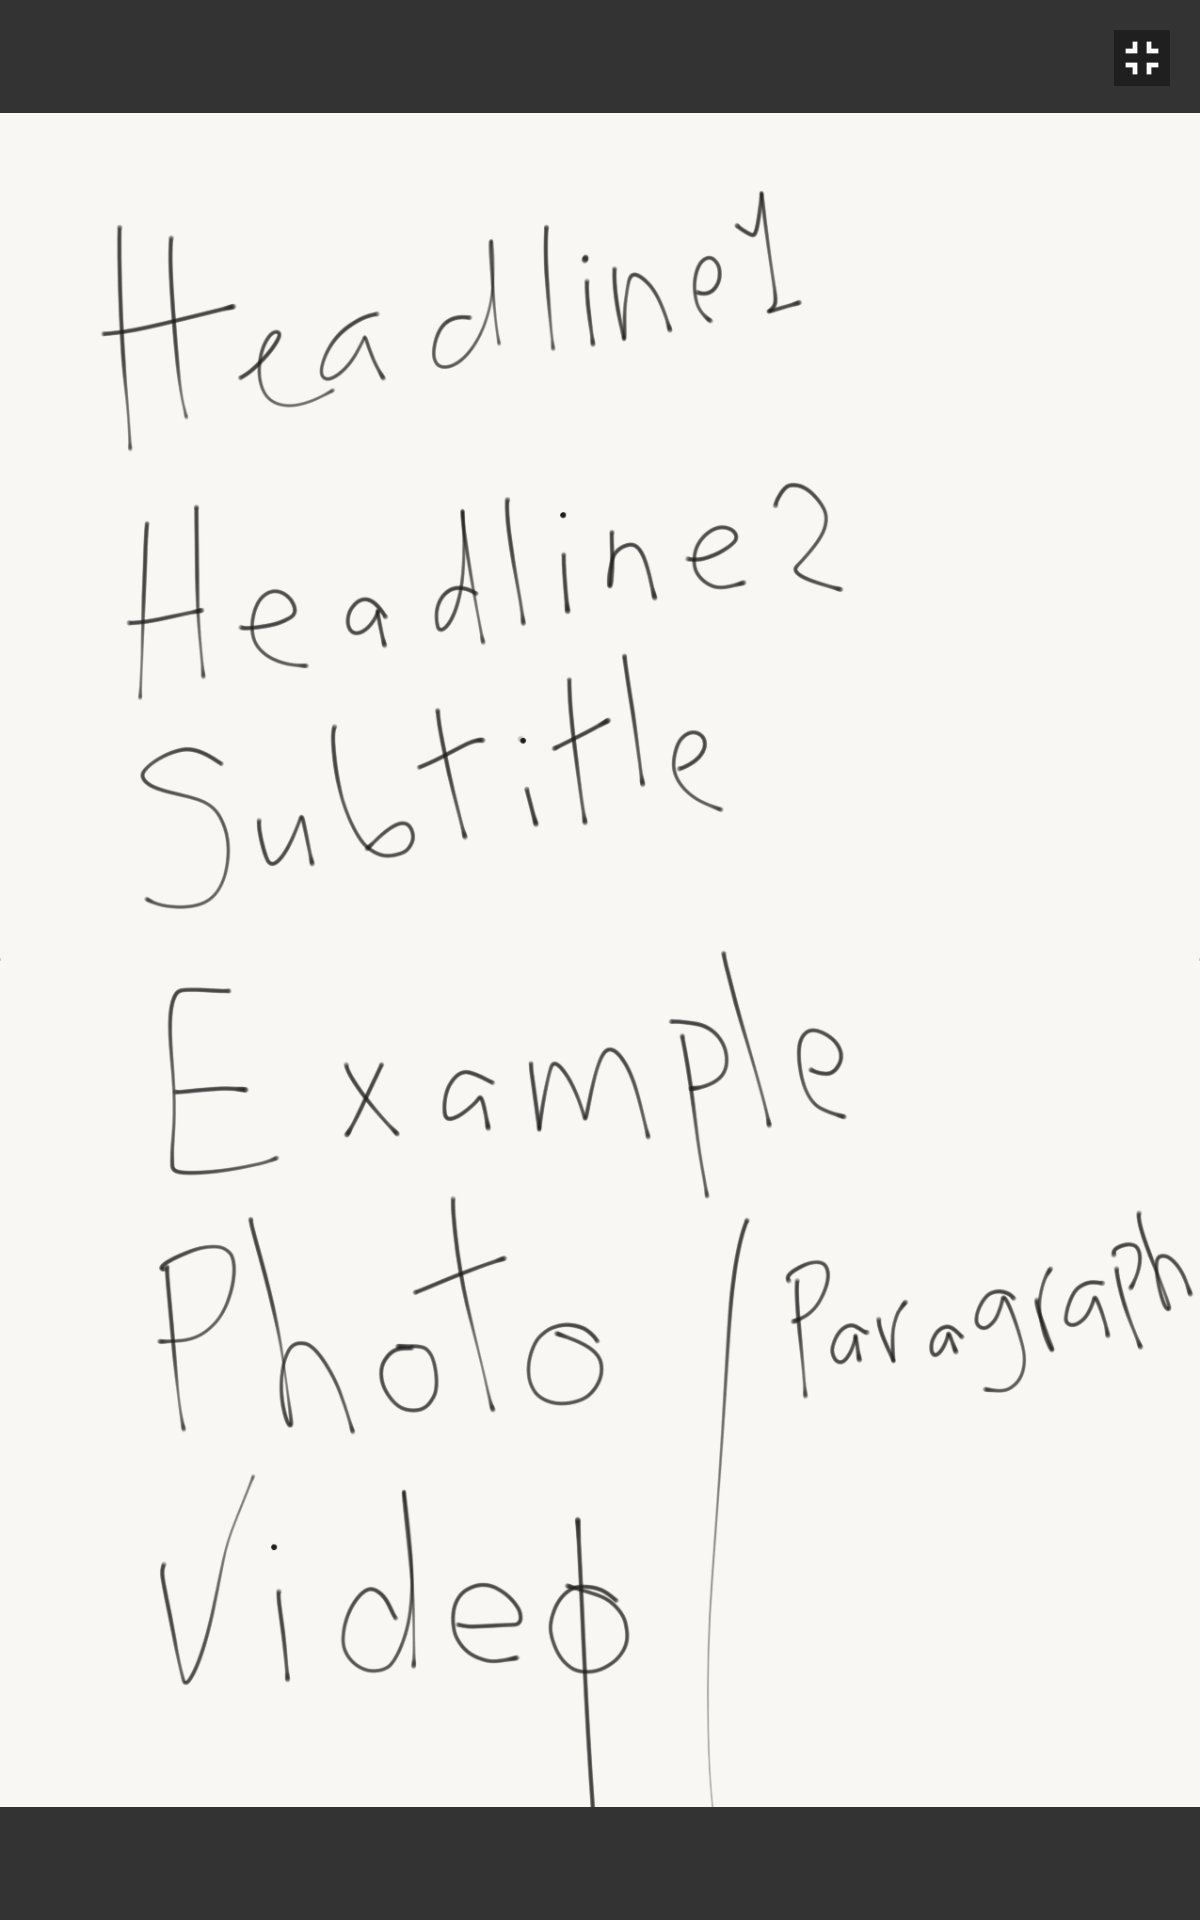 Headline1
Headline2
Subtitle
Example
Photo Paragraph
Video